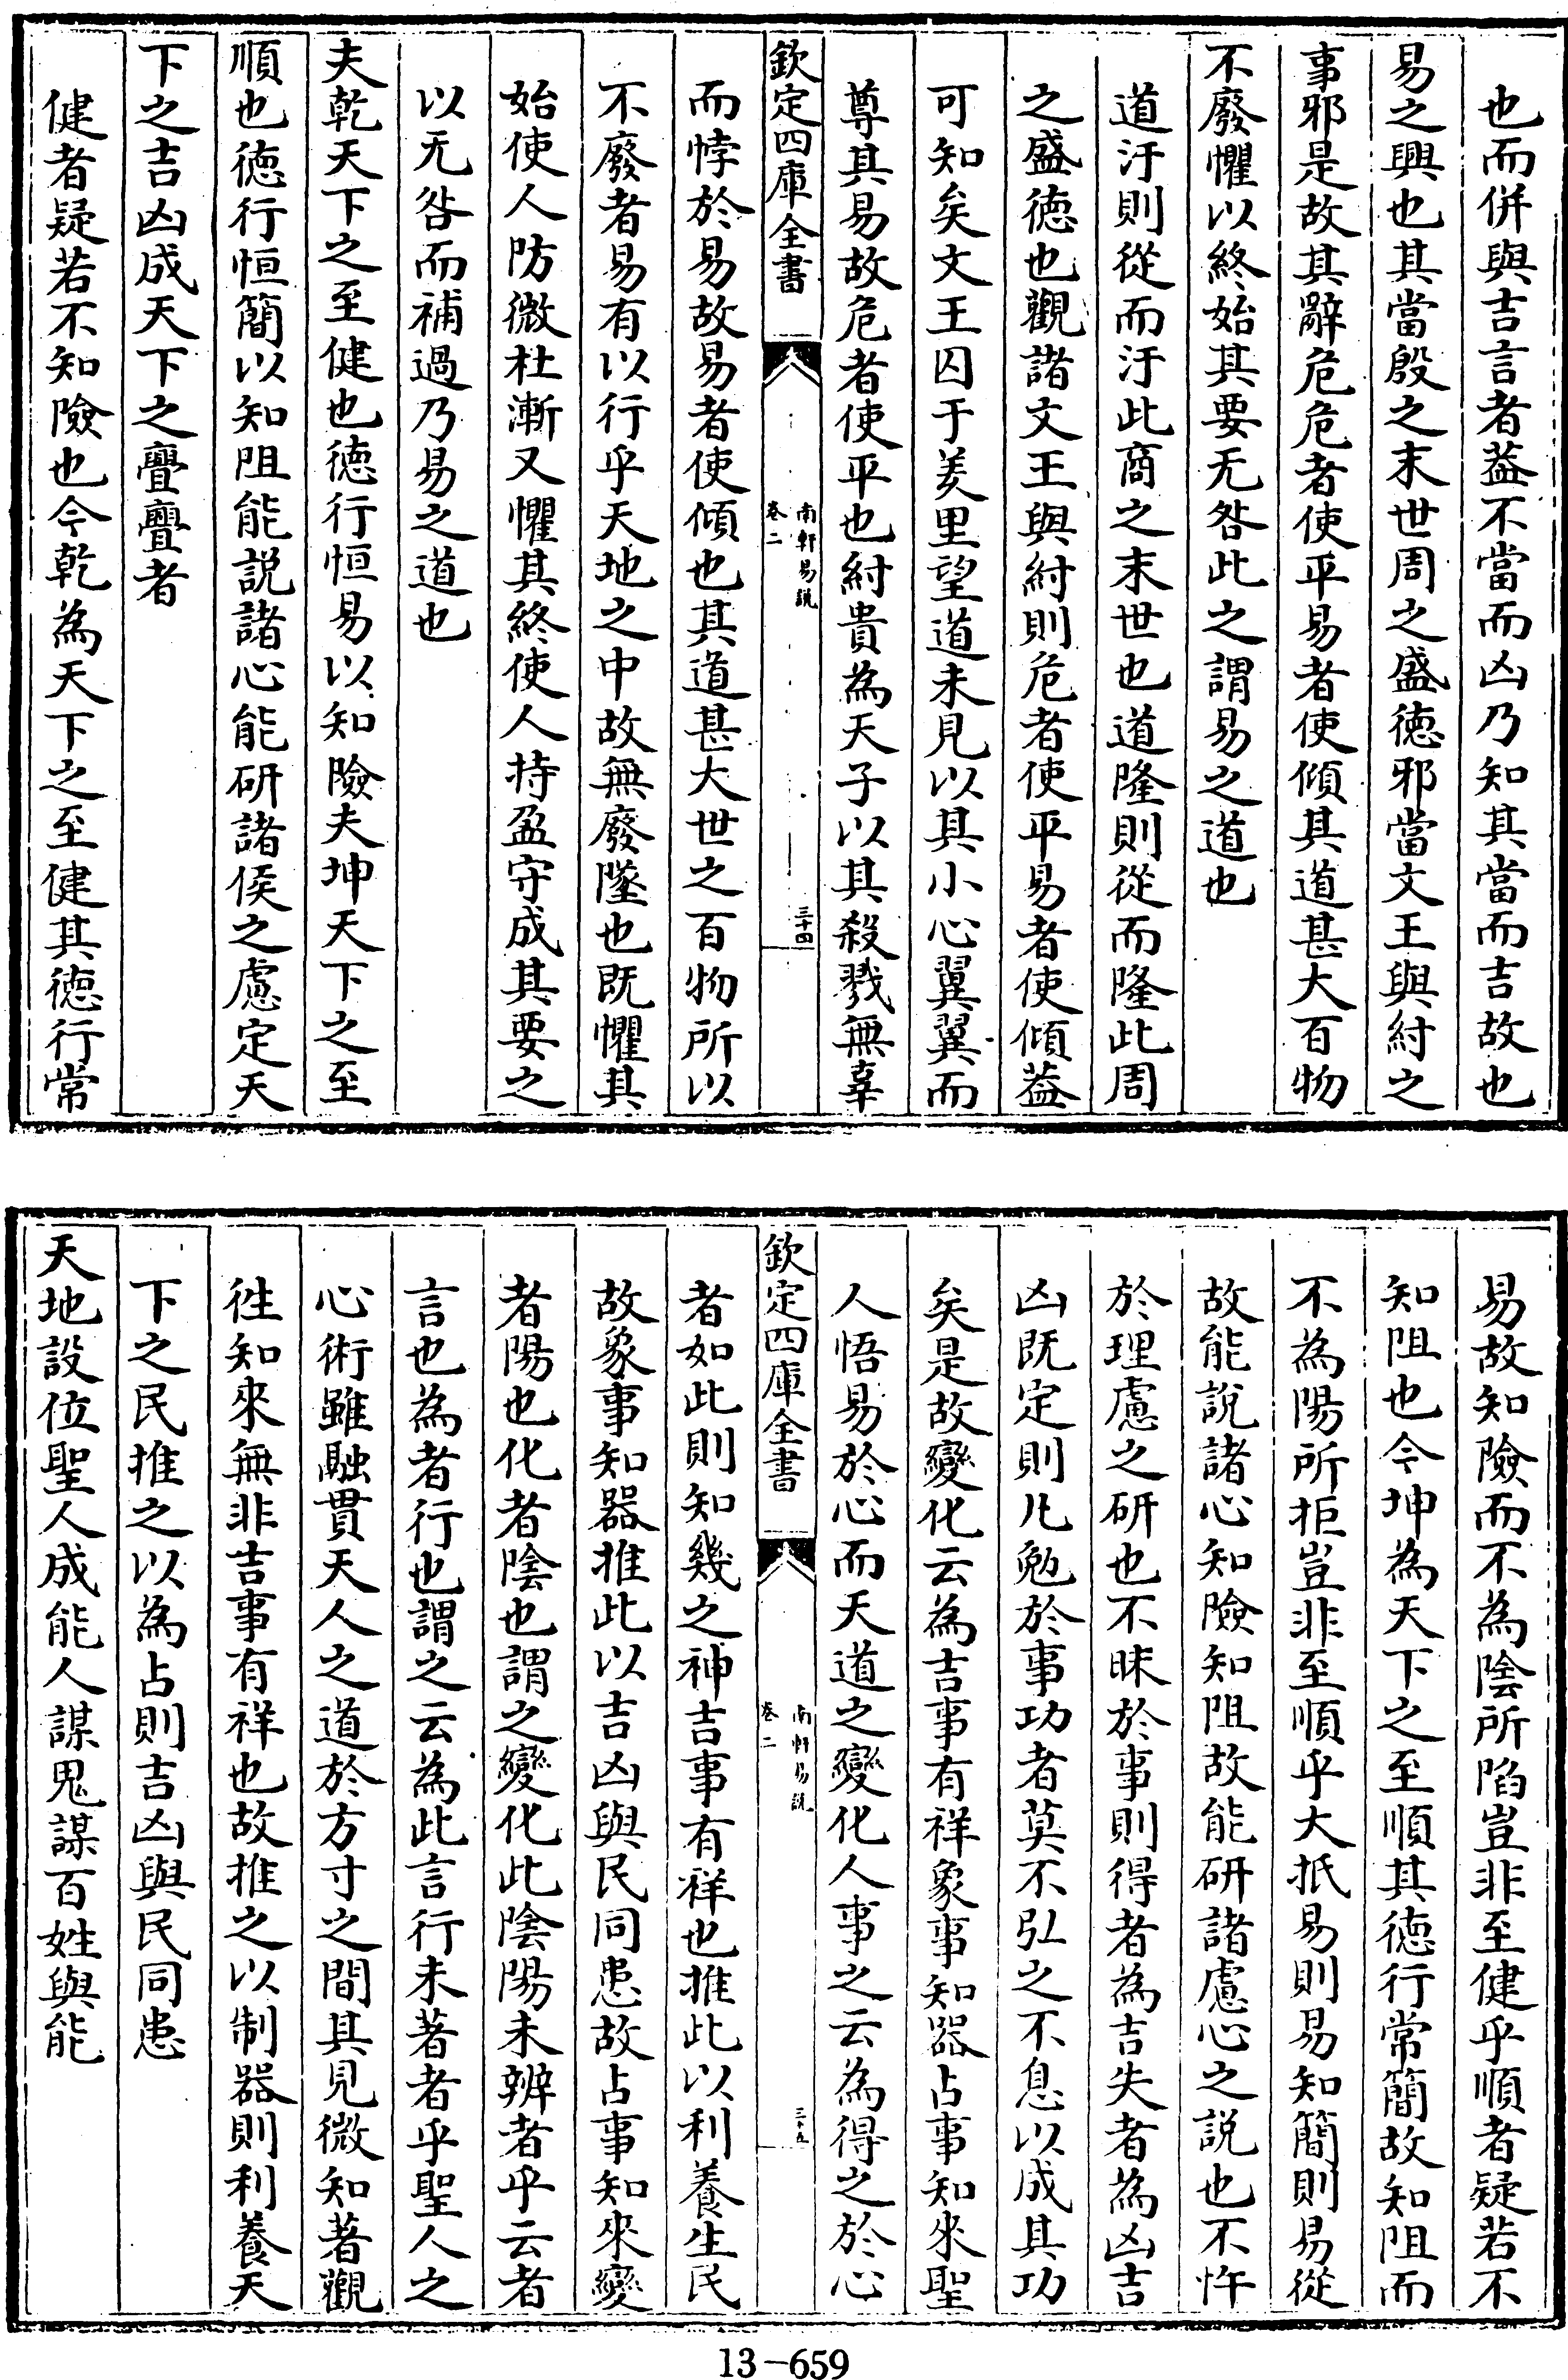 也而併與吉言者葢不當而凶乃知其當而吉故也
易之興也其當殷之末世周之盛德邪當文王與紂之
事邪是故其辭危危者使平易者使傾其道甚大百物
不廢懼以終始其要无咎此之謂易之道也
道汙則從而汙此商之末世也道隆則從而隆此周
之盛德也觀諸文王與紂則危者使平易者使傾葢
可知矣文王囚于羑里望道未見以其小心翼翼而
尊其易故危者使平也紂貴為天子以其殺戮無辜
欽定四庫全書
南軒易說
卷二
三十四
而悖於易故易者使傾也其道甚大世之百物所以
不廢者易有以行乎天地之中故無廢墜也既懼其
始使人防微杜漸又懼其終使人持盈守成其要之
以无咎而補過乃易之道也
夫乾天下之至健也德行恒易以知險夫坤天下之至
順也德行恒簡以知阻能説諸心能研諸侯之慮定天
下之吉凶成天下之亹亹者
健者疑若不知險也今乾為天下之至健其德行常
易故知險而不為陰所陷豈非至健乎順者疑若不
知阻也今坤為天下之至順其德行常簡故知阻而
不為陽所拒豈非至順乎大抵易則易知簡則易從
故能說諸心知險知阻故能研諸慮心之説也不忤
於理慮之研也不昧於事則得者為吉失者為凶吉
凶既定則凡勉於事功者莫不弘之不息以成其功
矣是故變化云為吉事有祥象事知器占事知來聖
人悟易於心而天道之變化人事之云為得之於心
欽定四庫全書
南軒易說
卷二
三十五
者如此則知幾之神吉事有祥也推此以利養生民
故象事知器推此以吉凶與民同患故占事知來變
者陽也化者陰也謂之變化此陰陽未辨者乎云者
言也為者行也謂之云為此言行未著者乎聖人之
心術雖融貫天人之道於方寸之間其見微知著觀
徃知來無非吉事有祥也故推之以制器則利養天
下之民推之以為占則吉凶與民同患
天地設位聖人成能人謀鬼謀百姓與能
13-659